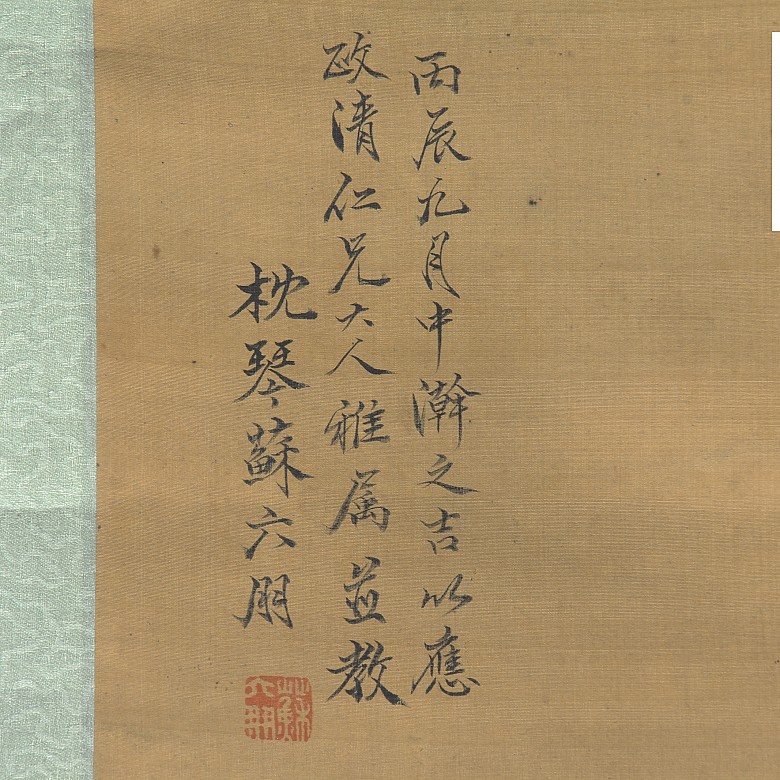 丙辰九月中澣之吉以應
政清仁兄大人雅属並教
枕琴蘇六朋
蘇六朋